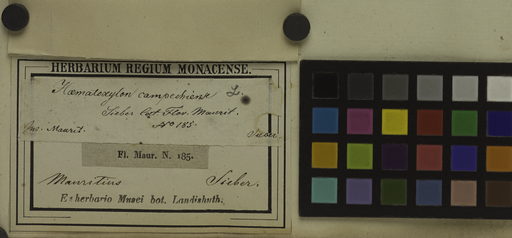 HERBARIUM REGIUM MONACENSE.
Hæmatoxylon campechiense L.
Sieber Flor. Maurit.
No 185.
Ins. Maurit. Sieber
Fl. Maur. N. 185.
Mauritius Sieber.
Ex herbario Musei bot. Landishuth.